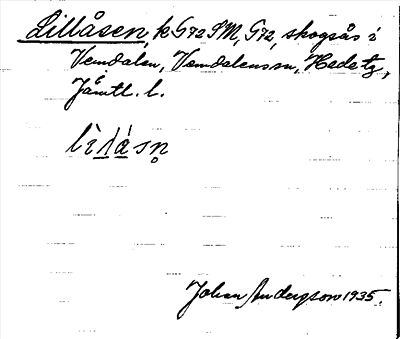 Lillåsen, k G72 SM, G72, skogsås i
Vemdalen, Vemdalens sn, Hede tg,
Jämtl. l.
lìlåsn̥
Johan Anderson 1935.